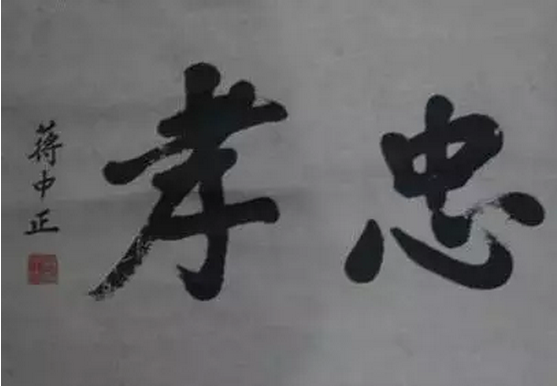 忠孝
蒋中正